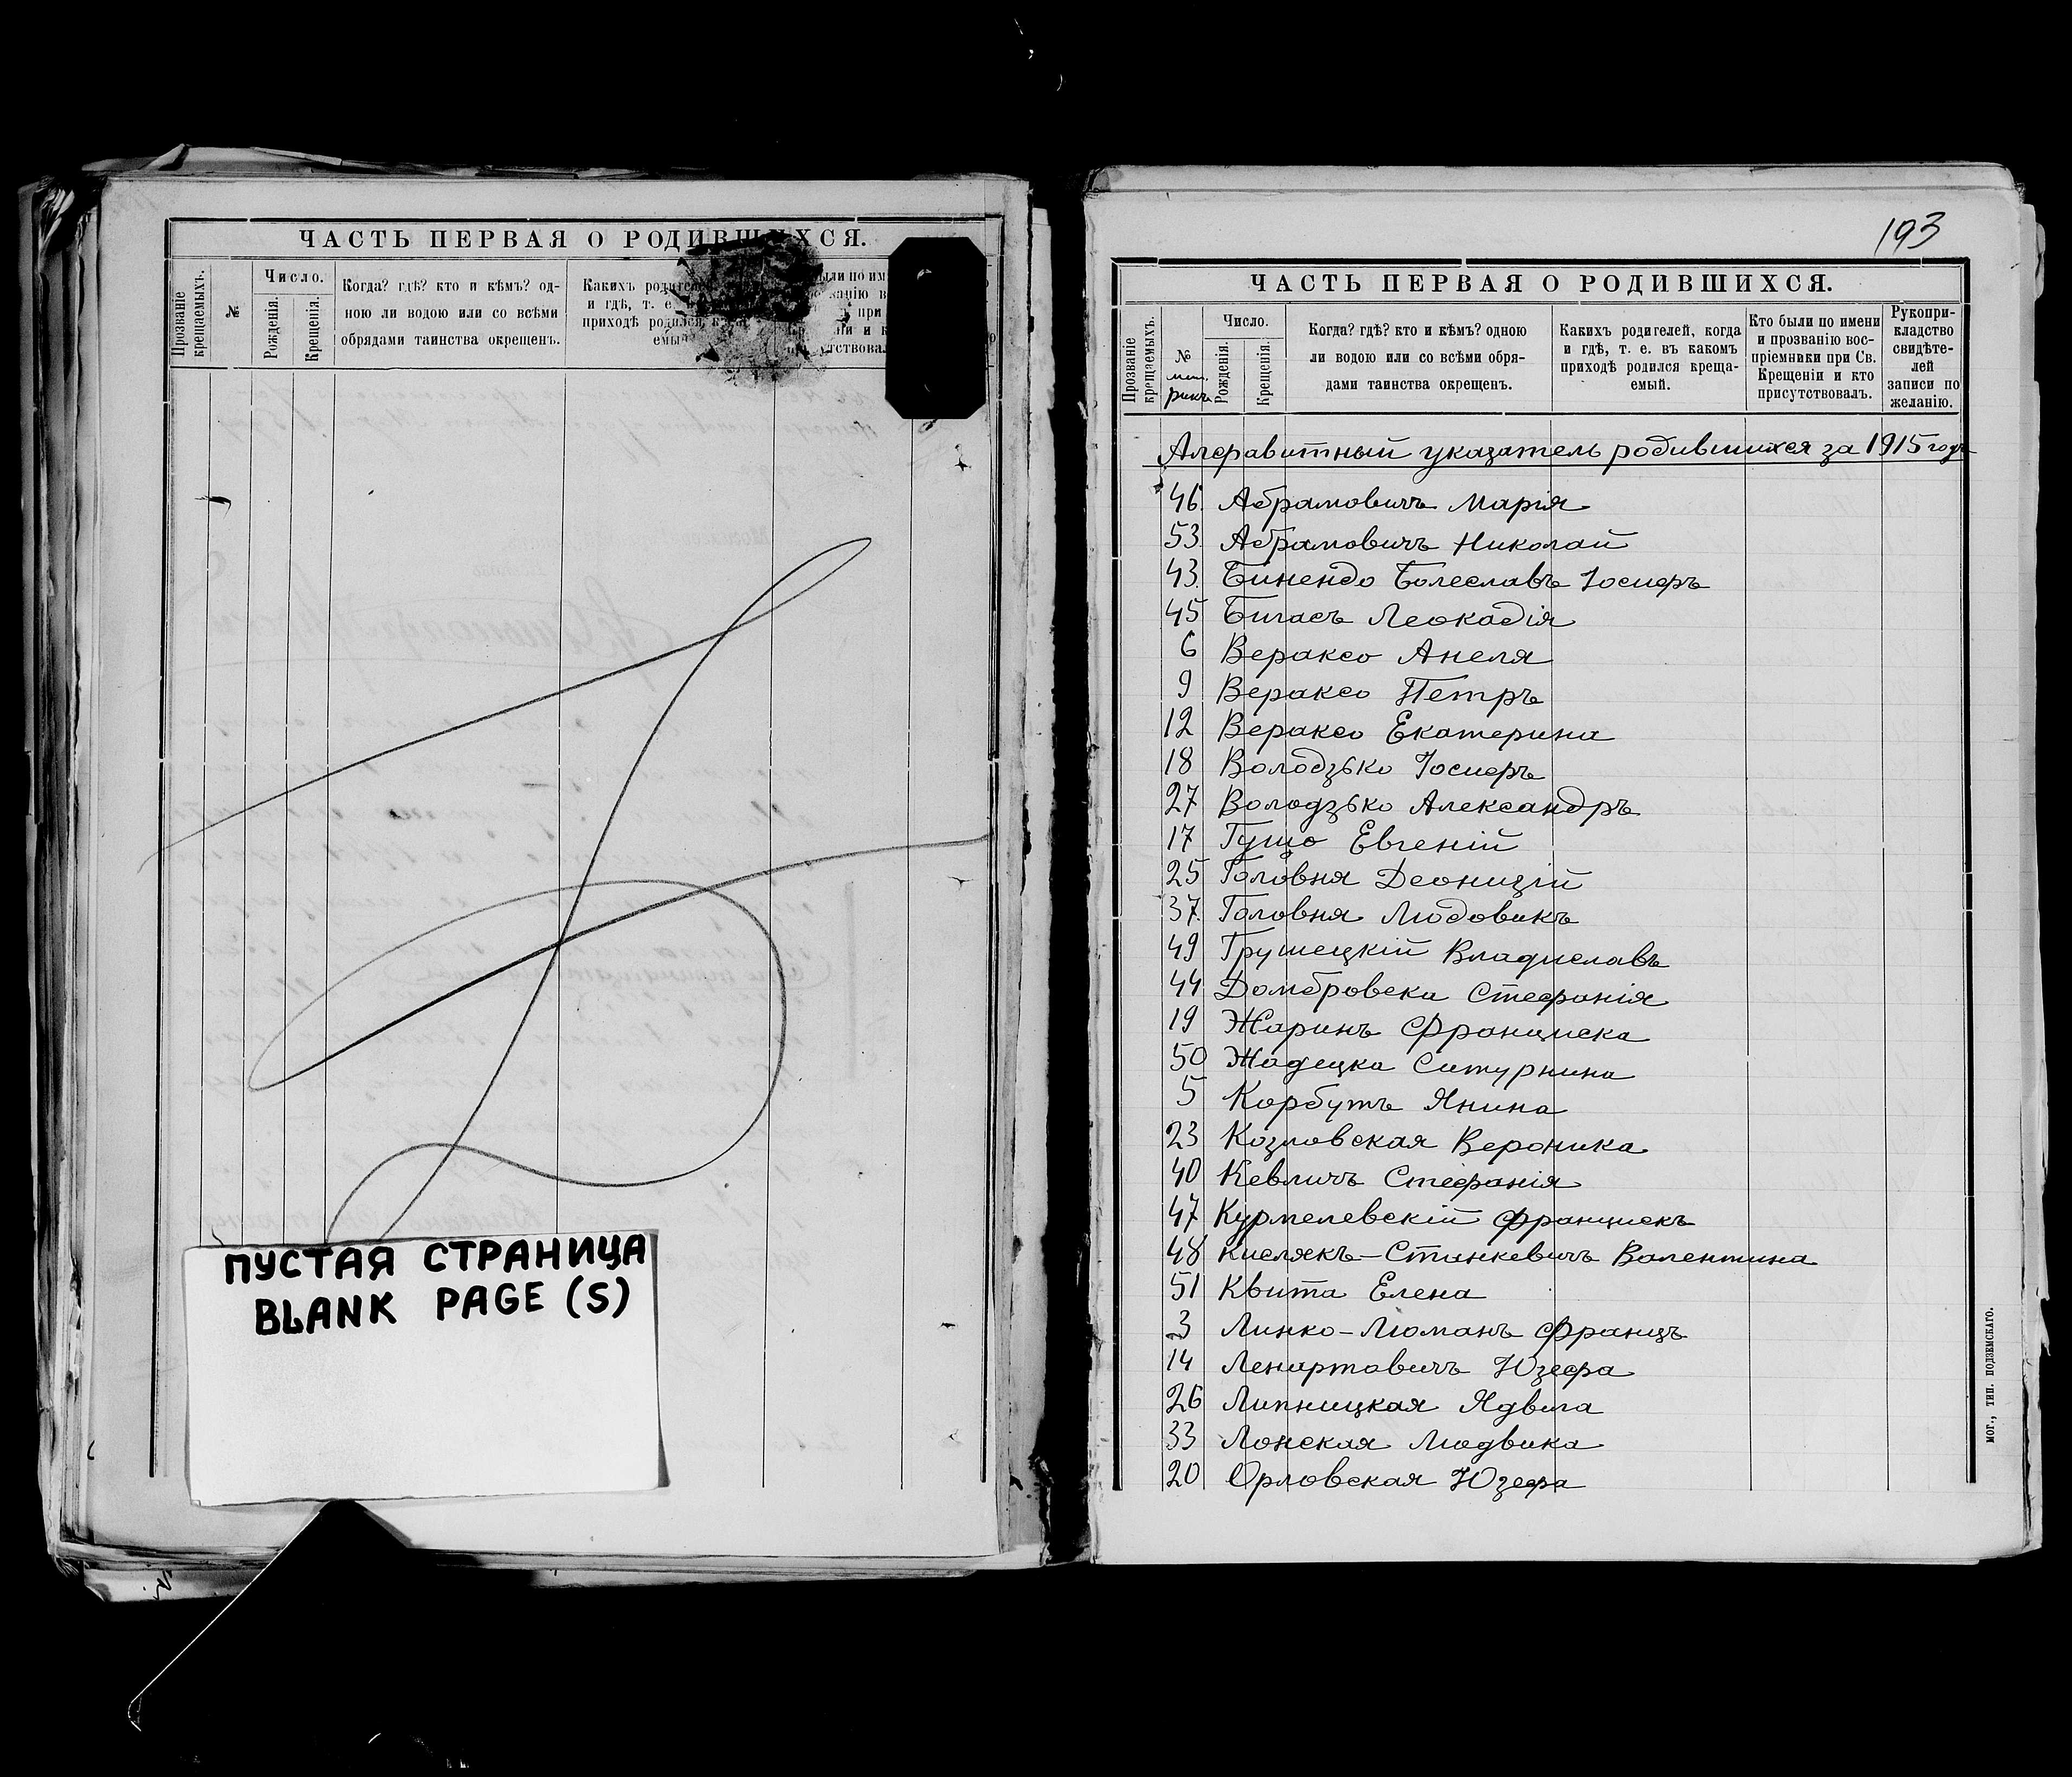 ЧАСТЬ ПЕРВАЯ О РОДИВШИХСЯ.
Прозваніе крещаемыхъ.
№
Число.
Рожденія.
Крещенія.
Когда? гдѣ? кто и кѣмъ? од-
ною ли водою или со всѣми
обрядами таинства окрещенъ.
Какихъ
и гдѣ, т. е.
приходѣ родился,
ПУСТАЯ СТРАНИЦА
BLANK PAGE (S)
193
ЧАСТЬ ПЕРВАЯ О РОДИВШИХСЯ.
Прозваніе крещаемыхъ.
№
мет.
рикъ
Число.
Рожденія.
Крещенія.
Когда? гдѣ? кто и кѣмъ? одною
ли водою или со всѣми обря-
дами таинства окрещенъ.
Какихъ родителей, когда
и гдѣ, т. е. въ какомъ
приходѣ родился креща-
емый.
Кто были по имени
и прозванію вос-
пріемники при Св.
Крещеніи и кто
присутствовалъ.
Рукопри-
кладство
свидѣте-
лей
записи по
желанію.
Алфавитный указатель родившихся за 1915 годъ
46. Абрамовичъ Марія
53. Абрамовичъ Николай
43. Бинендо Болеславъ Іосифъ
45 Бигасъ Леокадія
6 Вераксо Анеля
9 Вераксо Петръ
12 Вераксо Екатерина
18 Володзько Іосифъ
27 Володзько Александръ
17 Гушо Евгеній
25 Головня Деонизій
37. Головня Людовикъ
49 Грушецкій Владиславъ
44 Домбровска Стефанія
19 Жаринъ Франциска
50 Жадецка Сатурнина
5 Корбутъ Янина
23 Козловская Вероника
40 Кевличъ Стефанія
47 Курмелевскій Францискъ
48 Кислякъ-Станкевичъ Валентина
51 Квита Елена
3 Линко-Люманъ Францъ
14 Ленартовичъ Юзефа
26 Липницкая Ядвига
33 Лонская Людвика
20 Орловская Юзефа
МОГ., ТИП. ПОДЗЕМСКАГО.